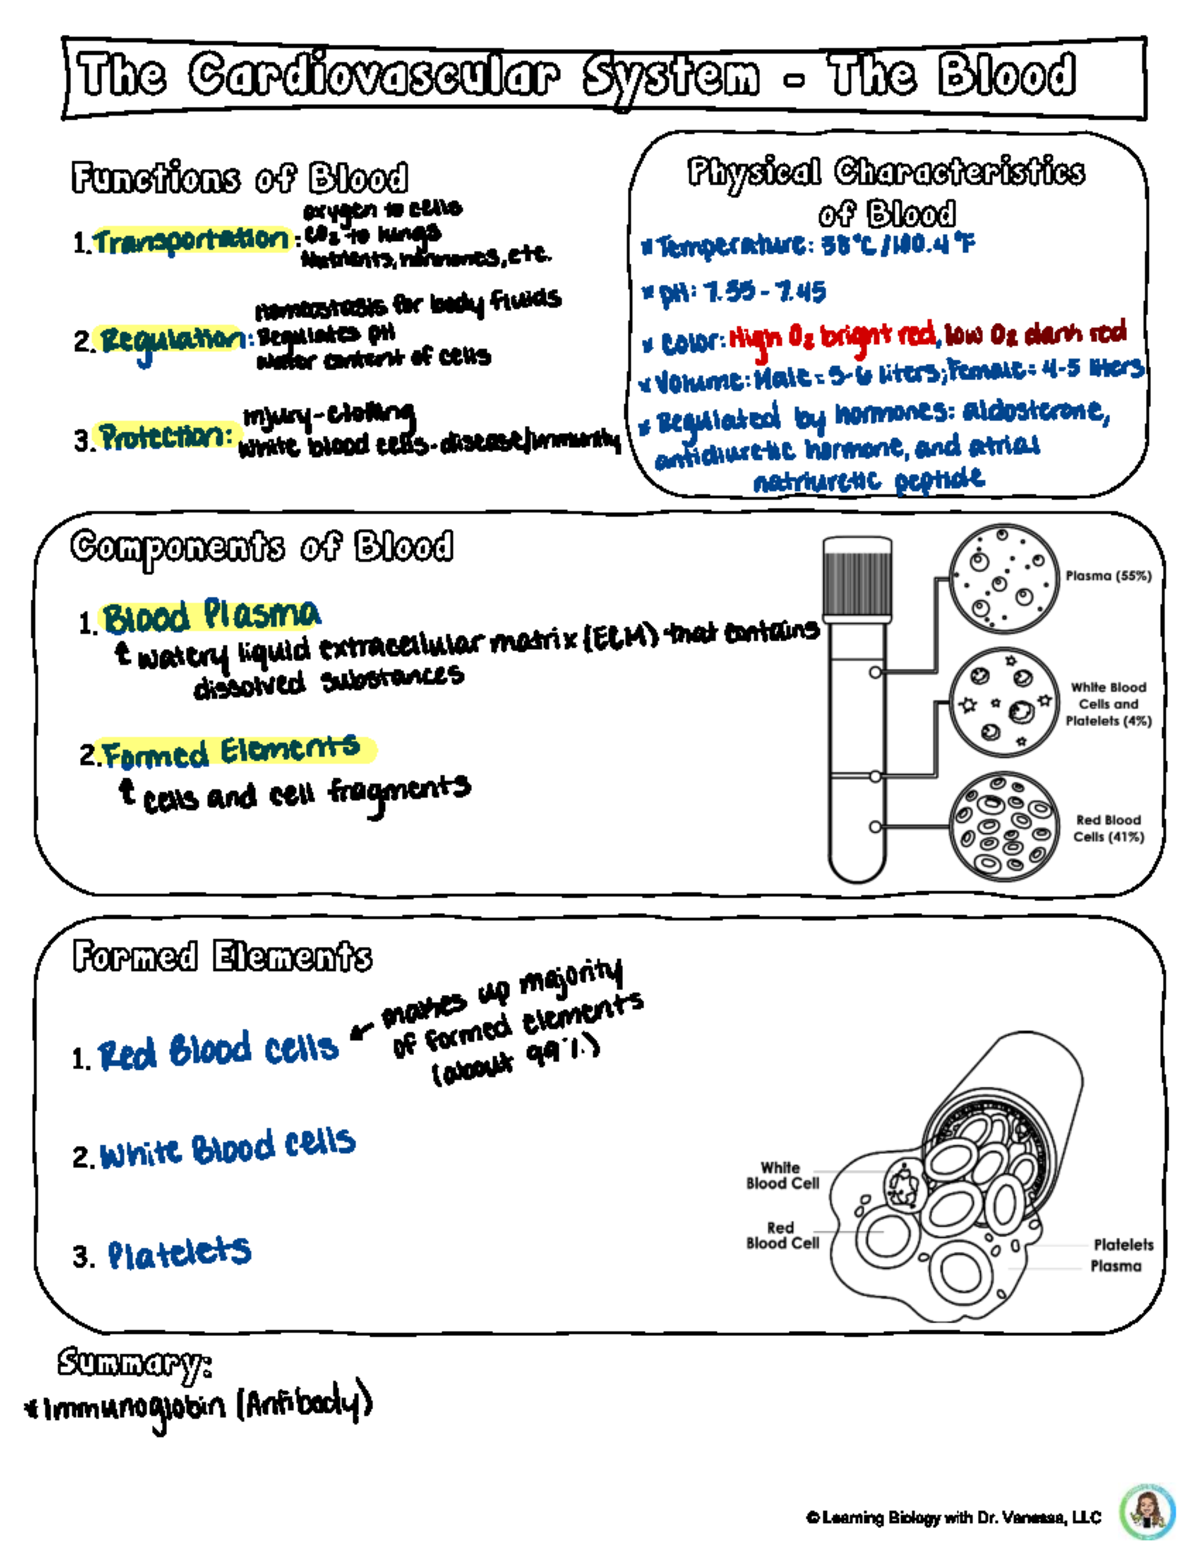 The Cardiovascular System - The Blood
Functions of Blood
1. Transportation: oxygen to cells
CO₂ to lungs
Nutrients, hormones, etc.
2. Regulation: homeostasis for body fluids
Regulates pH
water content of cells
3. Protection: injury-clotting
White blood cells-disease/immunity
Physical Characteristics
of Blood
* Temperature: 38°C/100.4°F
* pH: 7.35-7.45
* Color: High O₂ bright red, low O₂ dark red
* Volume: Male = 5-6 liters; Female = 4-5 liters
* Regulated by hormones: aldosterone,
antidiuretic hormone, and atrial
natriuretic peptide
Components of Blood
1. Blood Plasma
↑ watery liquid extracellular matrix (ECM) that contains
dissolved substances
2. Formed Elements
↑ cells and cell fragments
Plasma (55%)
White Blood
Cells and
Platelets (4%)
Red Blood
Cells (41%)
Formed Elements
1. Red Blood cells ← makes up majority
of formed elements
(about 99%)
2. White Blood cells
3. Platelets
White
Blood Cell
Red
Blood Cell
Platelets
Plasma
Summary:
* Immunoglobin (Antibody)
© Learning Biology with Dr. Vanessa, LLC